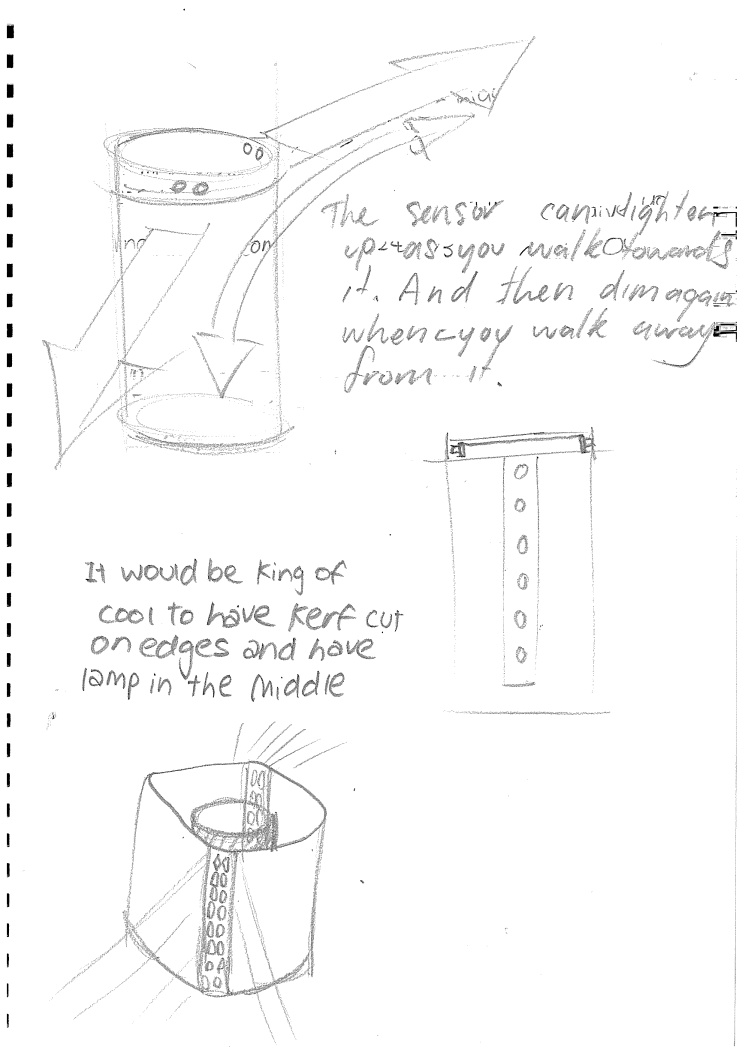 The sensor can lighten
up as you walk towards
it. And then dim again
when you walk away
from it.
It would be King of
cool to have Kerf cut
on edges and have
lamp in the middle